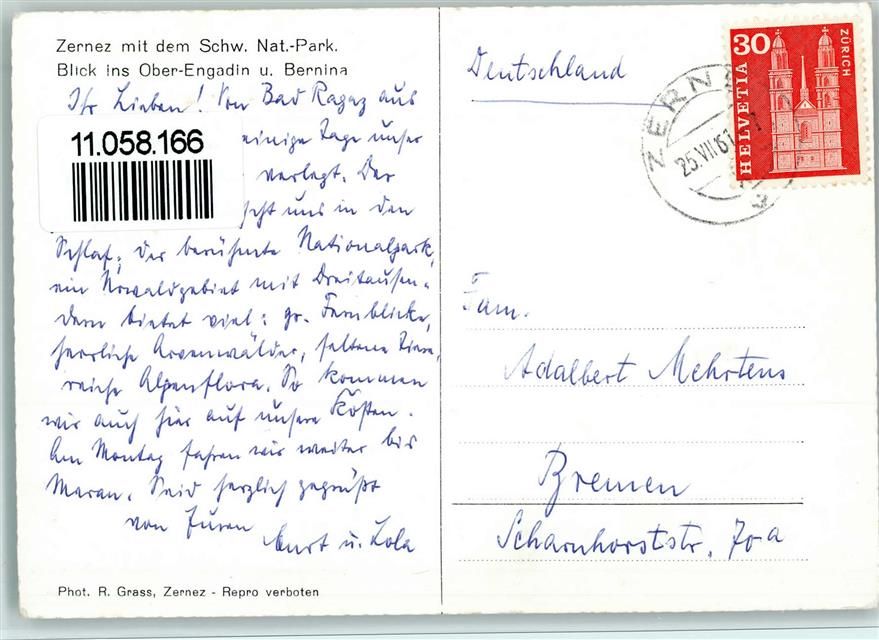 Zernez mit dem Schw. Nat.-Park.
Blick ins Ober-Engadin u. Bernina
Ihr Lieben! Von Bad Ragaz aus
einige Tage unser
verlegt. Der
uns in den
Schlaf; der berühmte Nationalpark,
ein Urwaldgebiet mit Dreitausen-
dern bietet viel: gr. Fernblicke,
herrliche Arvenwälder, seltene Tiere,
reiche Alpenflora. So kommen
wir auch hier auf unsere Kosten.
Am Montag fahren wir weiter bis
Meran. Seid herzlich gegrüßt
von Euren
Curt u. Lola
Phot. R. Grass, Zernez - Repro verboten
11.058.166
Deutschland
30
HELVETIA
ZÜRICH
ZERNEZ
25.VII.61
Fam.
Adalbert Mehrtens
Bremen
Scharnhorststr. 70a